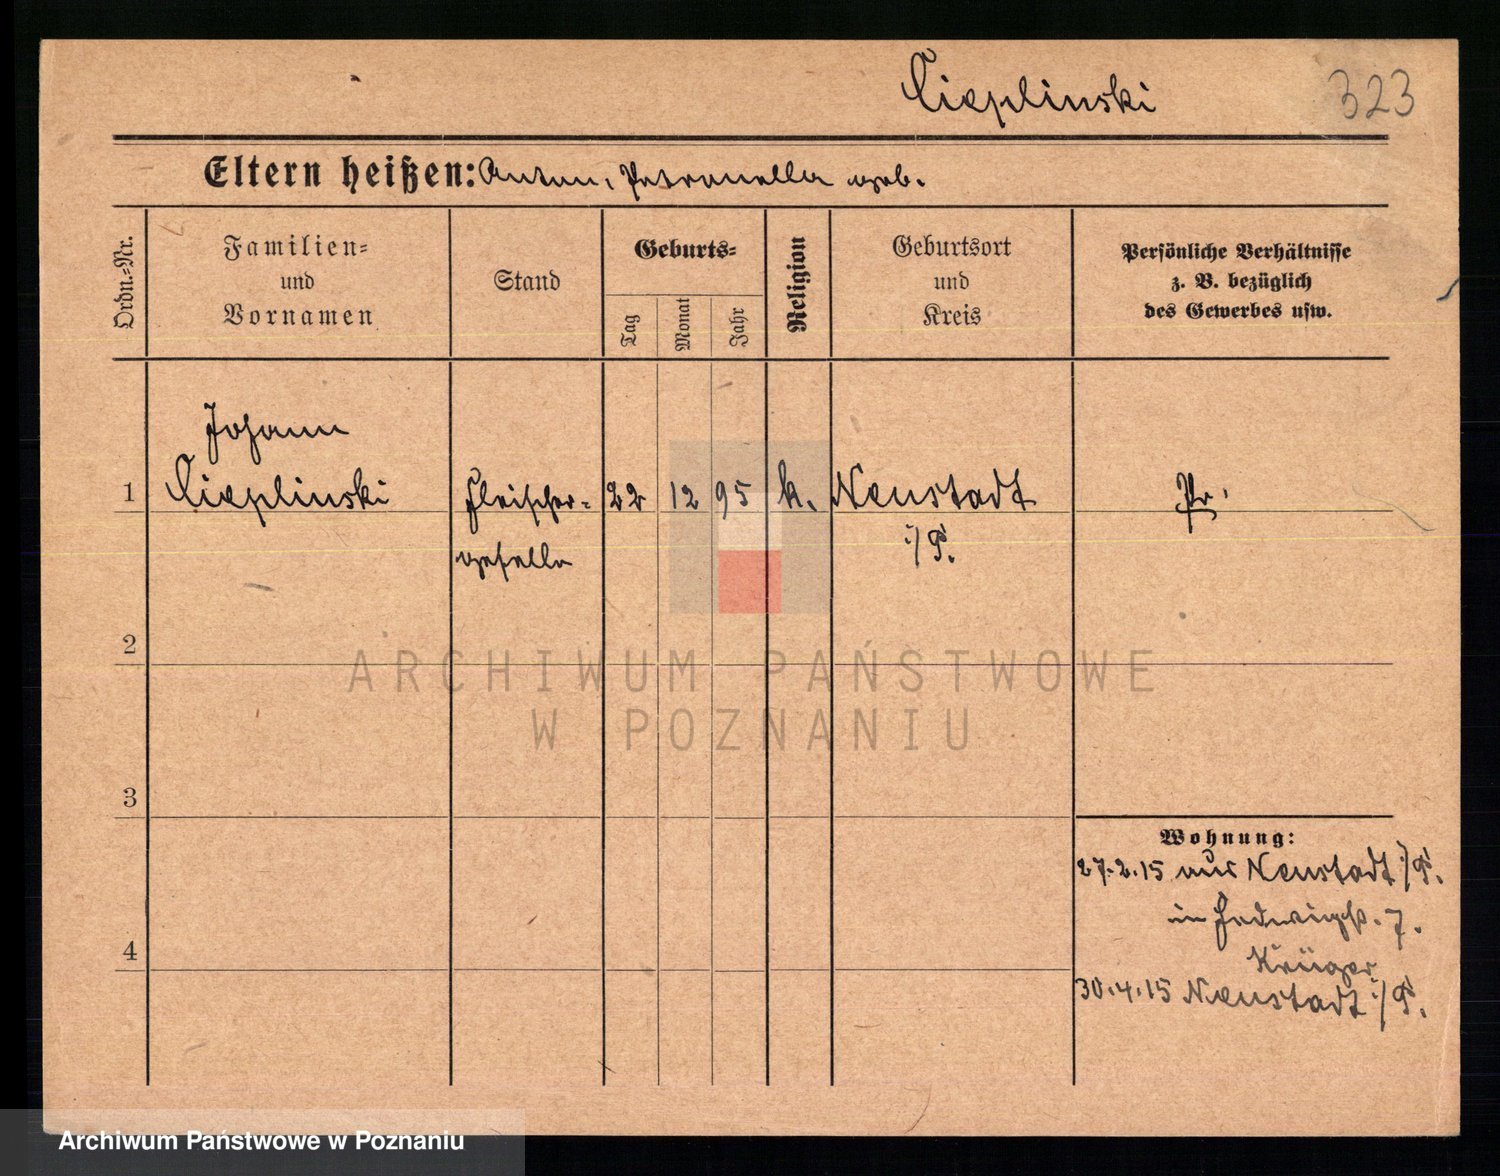 Cieplinski 323
Eltern heißen: Anton, Petronella geb.
Ordn.-Nr.
Familien-
und
Vornamen
Stand
Geburts-
Tag
Monat
Jahr
Religion
Geburtsort
und
Kreis
Persönliche Verhältnisse
z. B. bezüglich
des Gewerbes usw.
Johann
1 Cieplinski Fleischer- 22 12 95 k. Neustadt Pr.
geselle i/P.
2
ARCHIWUM PAŃSTWOWE
W POZNANIU
3
Wohnung:
27.2.15 aus Neustadt i/P.
in Hedwigst. 7.
4
Krüger
30.4.15 Neustadt i/P.
Archiwum Państwowe w Poznaniu